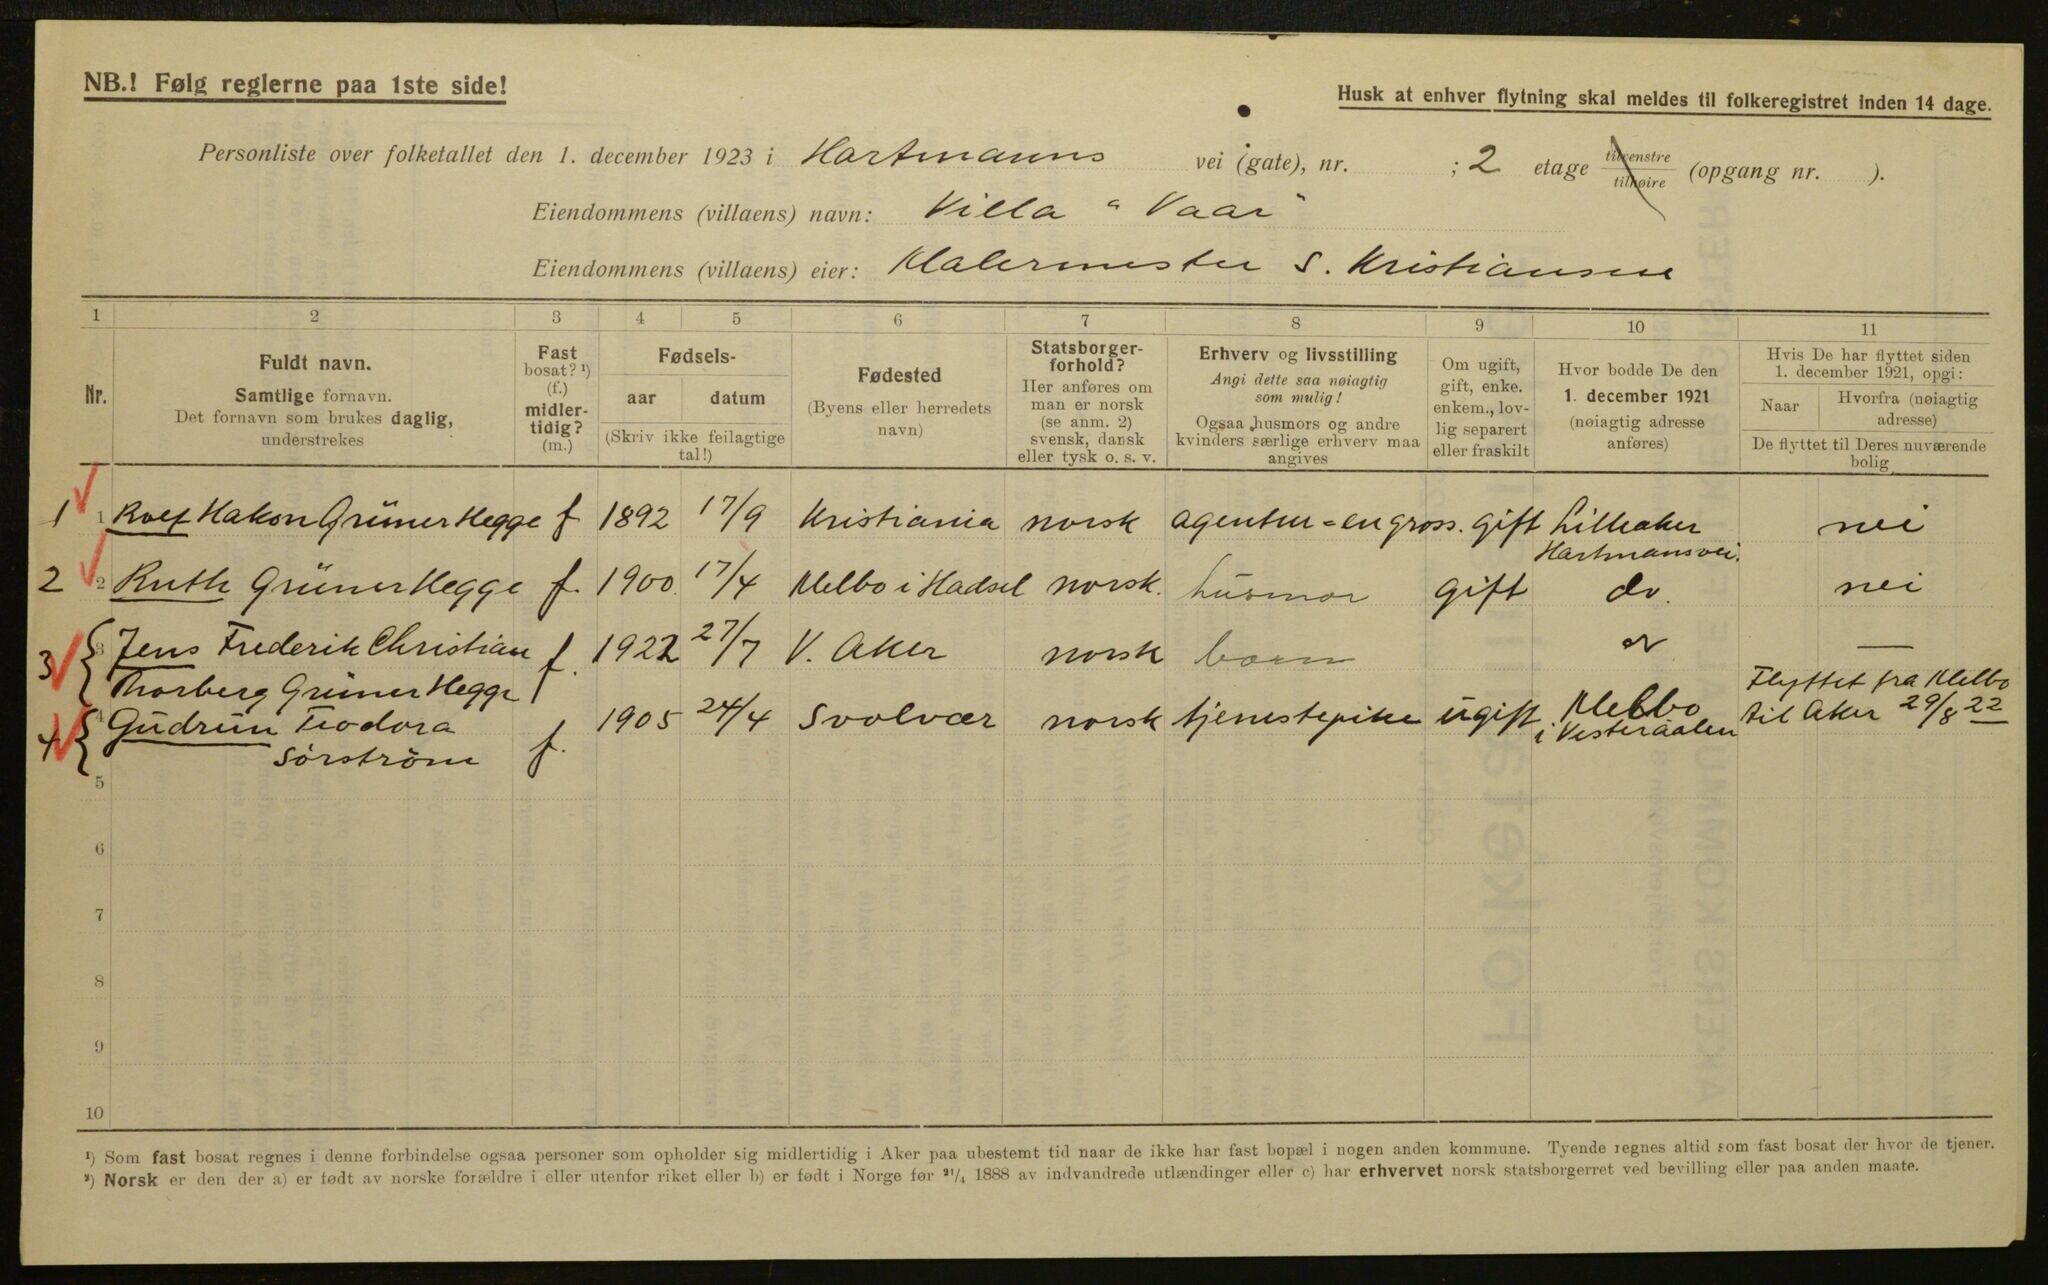 NB.! Følg reglerne paa 1ste side!
Husk at enhver flytning skal meldes til folkeregistret inden 14 dage.
Personliste over folketallet den 1. december 1923 i Hartmanns vei (gate), nr. ; 2 etage tilvenstre / tilhøire (opgang nr. ).
Eiendommens (villaens) navn: Villa "Vaar"
Eiendommens (villaens) eier: Malermester S. Kristiansen
1 2 3 4 5 6 7 8 9 10 11
Nr.
Fuldt navn.
Samtlige fornavn.
Det fornavn som brukes daglig,
understrekes
Fast
bosat? ¹)
(f.)
midler-
tidig?
(m.)
Fødsels-
aar datum
(Skriv ikke feilagtige
tal!)
Fødested
(Byens eller herredets
navn)
Statsborger-
forhold?
Her anføres om
man er norsk
(se anm. 2)
svensk, dansk
eller tysk o. s. v.
Erhverv og livsstilling
Angi dette saa nøiagtig
som mulig!
Ogsaa husmors og andre
kvinders særlige erhverv maa
angives
Om ugift,
gift, enke.
enkem., lov-
lig separert
eller fraskilt
Hvor bodde De den
1. december 1921
(nøiagtig adresse
anføres)
Hvis De har flyttet siden
1. december 1921, opgi:
Naar Hvorfra (nøiagtig
adresse)
De flyttet til Deres nuværende
bolig
1 1 Rolf Hakon Grüner Hegge f 1892 17/9 Kristiania norsk agentur = engross. gift Lilleaker nei
Hartmansvei.
2 2 Ruth Grüner Hegge f. 1900. 17/4 Melbo i Hadsel norsk. husmor gift do. nei
3 3 Jens Frederik Christian f. 1922 27/7 V. Aker norsk barn —
Thorberg Grüner Hegge
4 4 Gudrun Teodora f. 1905 24/4 Svolvær norsk tjenestepike ugift Melbo Flyttet fra Melbo
Sørström i Vesteraalen til Aker 29/8 22
5
6
7
8
9
10
¹) Som fast bosat regnes i denne forbindelse ogsaa personer som opholder sig midlertidig i Aker paa ubestemt tid naar de ikke har fast bopæl i nogen anden kommune. Tyende regnes altid som fast bosat der hvor de tjener.
²) Norsk er den der a) er født av norske forældre i eller utenfor riket eller b) er født i Norge før 21/4 1888 av indvandrede utlændinger eller c) har erhvervet norsk statsborgerret ved bevilling eller paa anden maate.